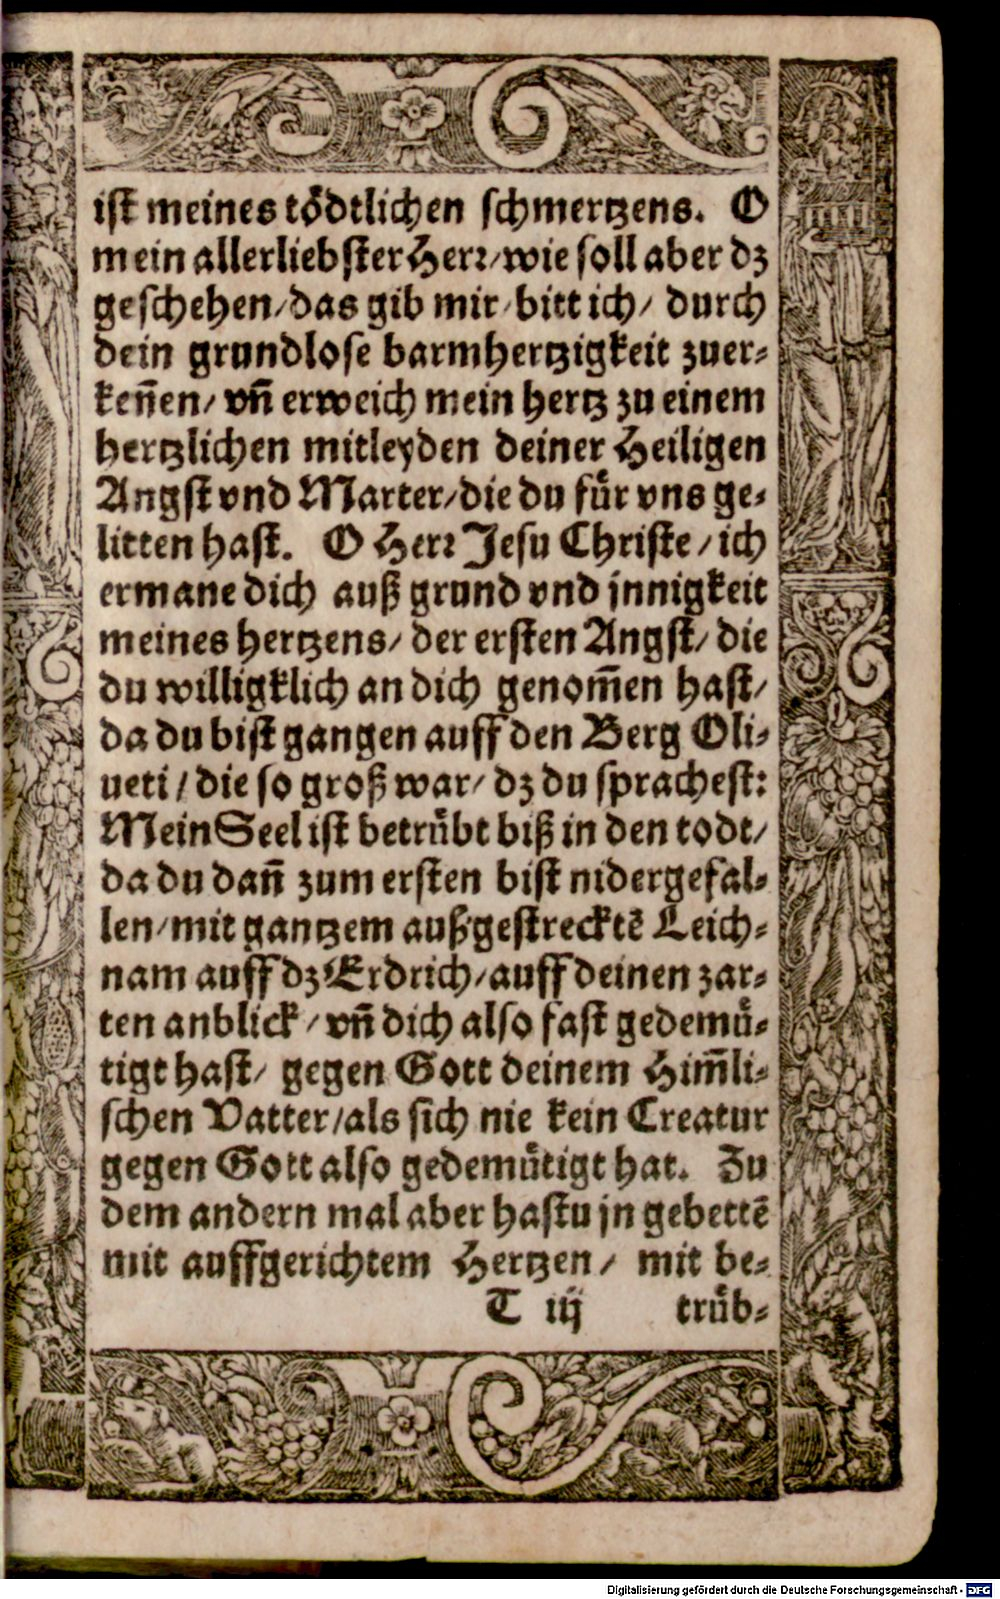 ist meines tödtlichen schmertzens. O
mein allerliebster Herr/wie soll aber dz
geschehen/das gib mir/bitt ich/ durch
dein grundlose barmhertzigkeit zuer-
keñen/ vñ erweich mein hertz zu einem
hertzlichen mitleyden deiner Heiligen
Angst vnd Marter/die du für vns ge-
litten hast. O Herr Jesu Christe/ich
ermane dich auß grund vnd jnnigkeit
meines hertzens/ der ersten Angst/ die
du willigklich an dich genom̃en hast/
da du bist gangen auff den Berg Oli-
ueti/ die so groß war/ dz du sprachest:
Mein Seel ist betrübt biß in den todt/
da du dañ zum ersten bist nidergefal-
len/mit gantzem außgestrecktẽ Leich-
nam auff dz Erdrich/auff deinen zar-
ten anblick/ vñ dich also fast gedemü-
tigt hast/ gegen Gott deinem Him̃li-
schen Vatter/als sich nie kein Creatur
gegen Gott also gedemütigt hat. Zu
dem andern mal aber hastu jn gebettẽ
mit auffgerichtem Hertzen/ mit be-
T iij trüb-
Digitalisierung gefördert durch die Deutsche Forschungsgemeinschaft - DFG